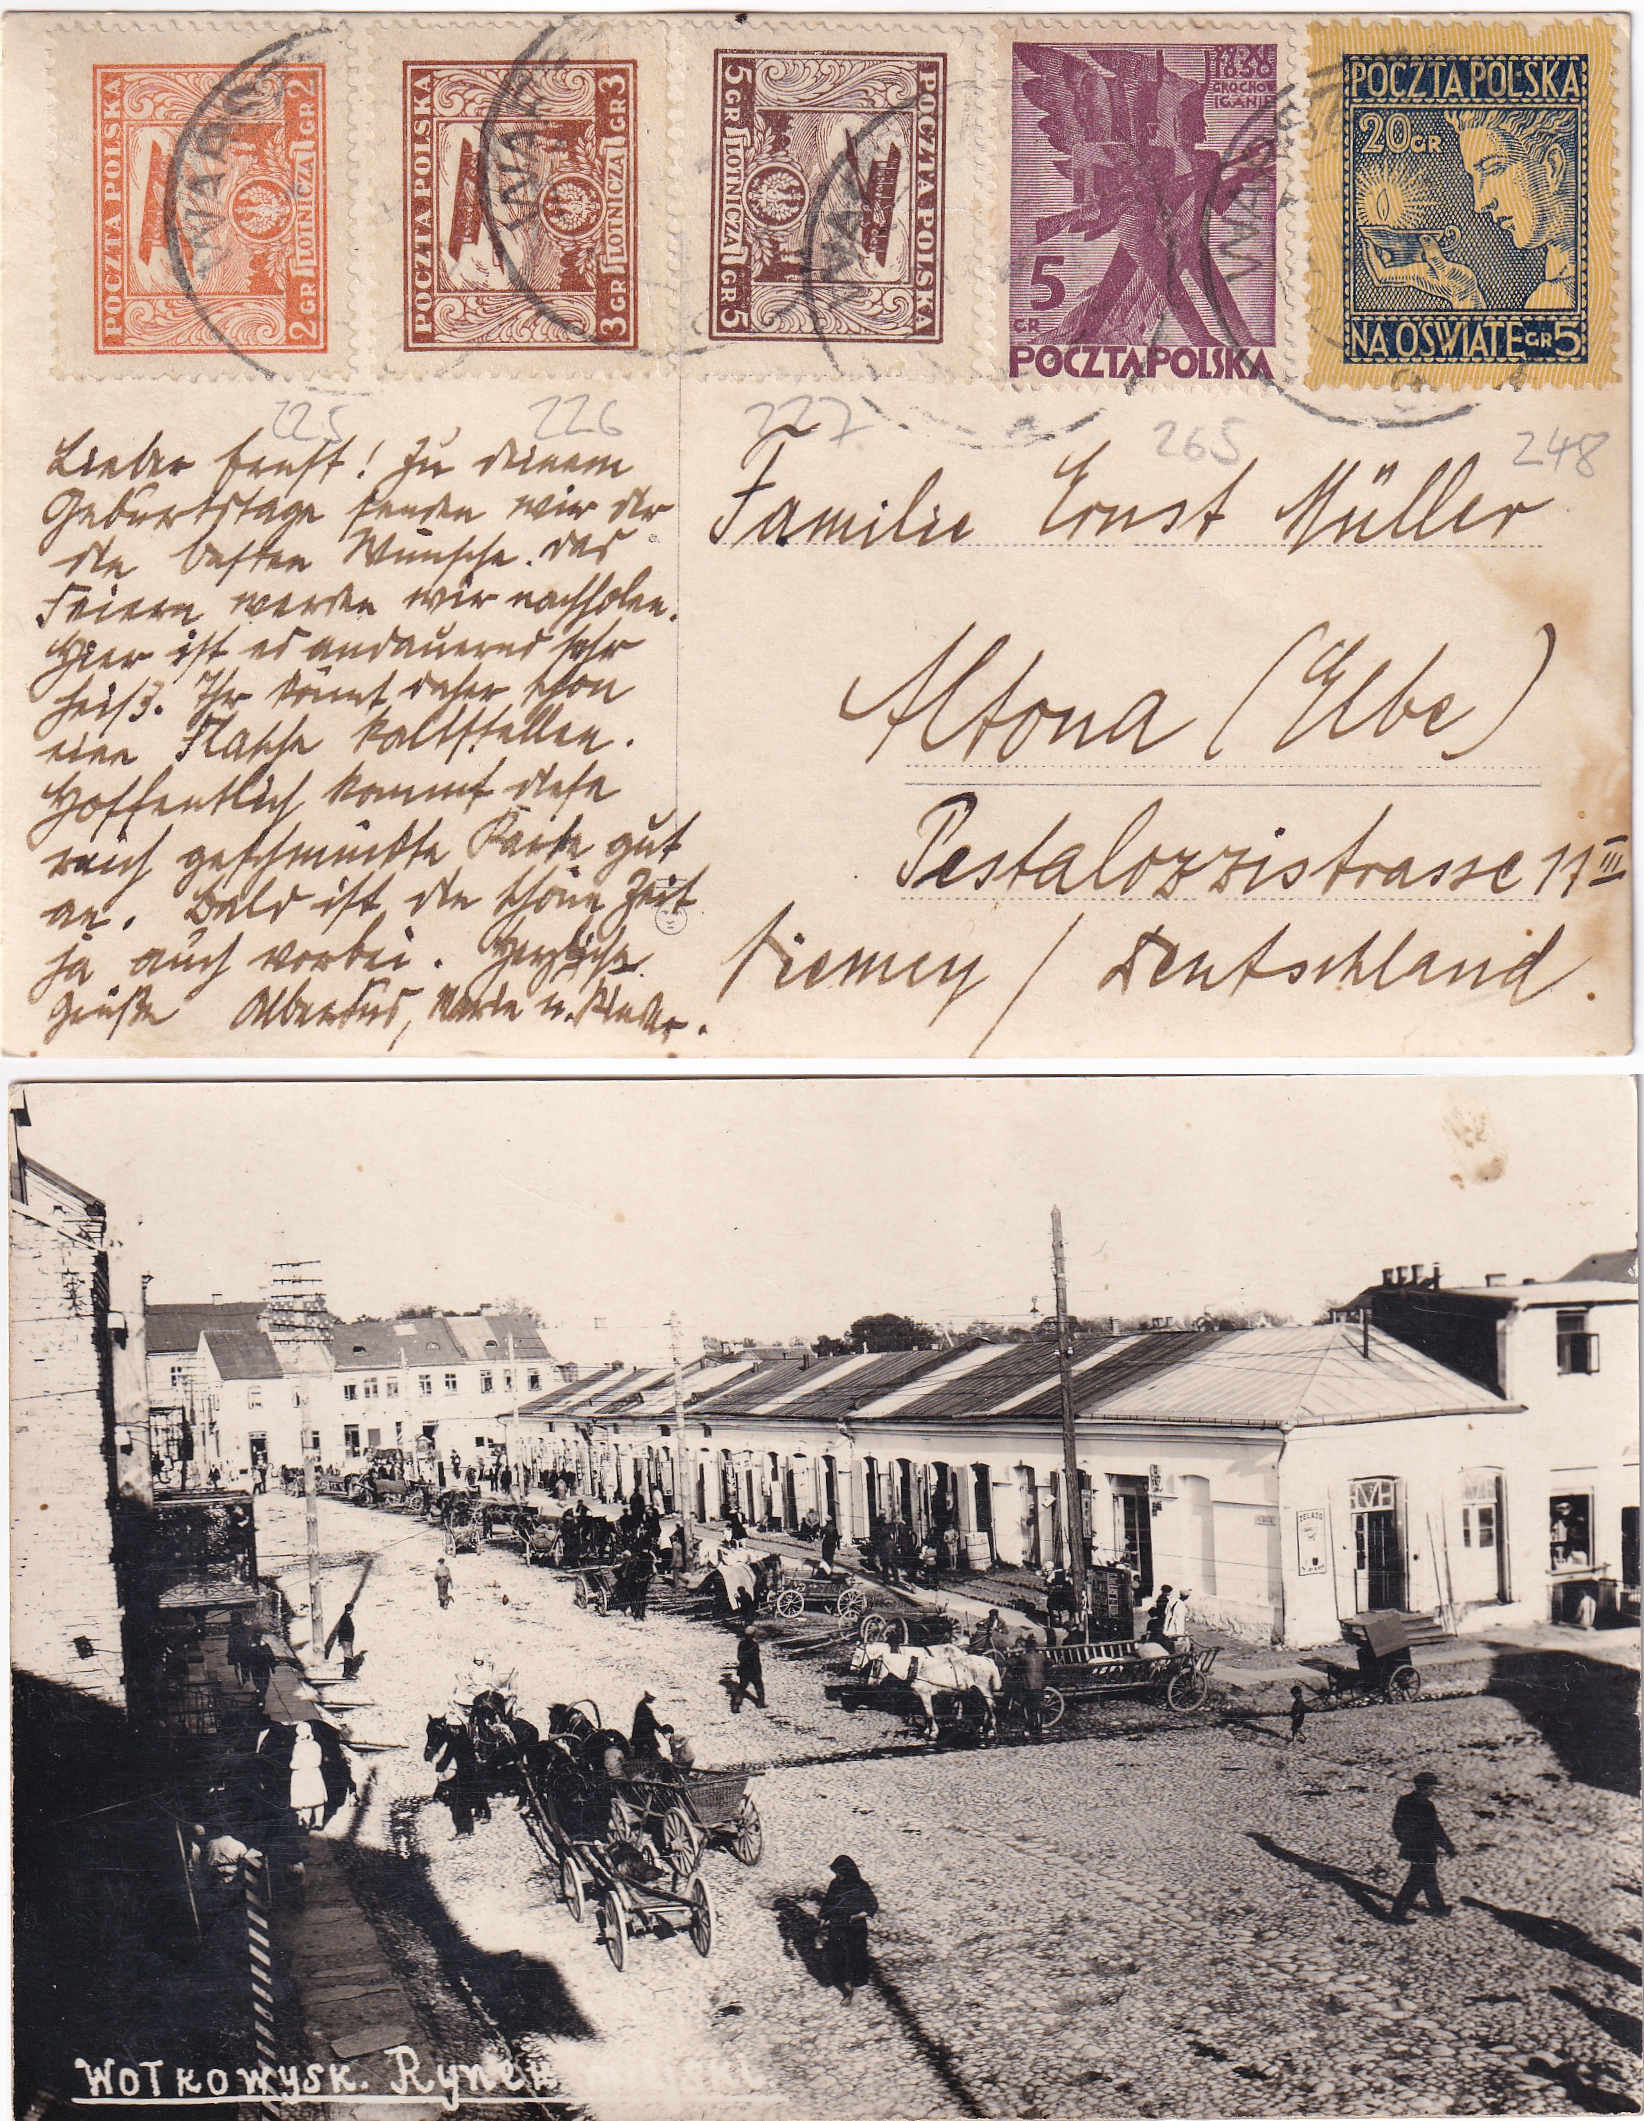 POCZTA POLSKA
2 GR LOTNICZA GR 2
POCZTA POLSKA
3 GR LOTNICZA GR 3
POCZTA POLSKA
5 GR LOTNICZA GR 5
1830
GROCHÓW
IGANIE
5
GR
POCZTA POLSKA
POCZTA POLSKA
20 GR
NA OŚWIATĘ GR 5
225
226
227
265
248
Lieber Ernst! Zu deinem
Geburtstage senden wir dir
die besten Wünsche. Das
Feiern werden wir nachholen.
Hier ist es andauernd sehr
heiß. Ihr könnt daher schon
eine Flasche kaltstellen.
Hoffentlich kommt diese
reich geschmückte Karte gut
an. Bald ist die schöne Zeit
ja auch vorbei. Herzliche
Grüße Albertus, u. Kinder.
Familie Ernst Müller
Altona (Elbe)
Pestalozzistrasse 11 III
Niemcy / Deutschland.
ŻELAZO
WOŁKOWYSK. Rynek